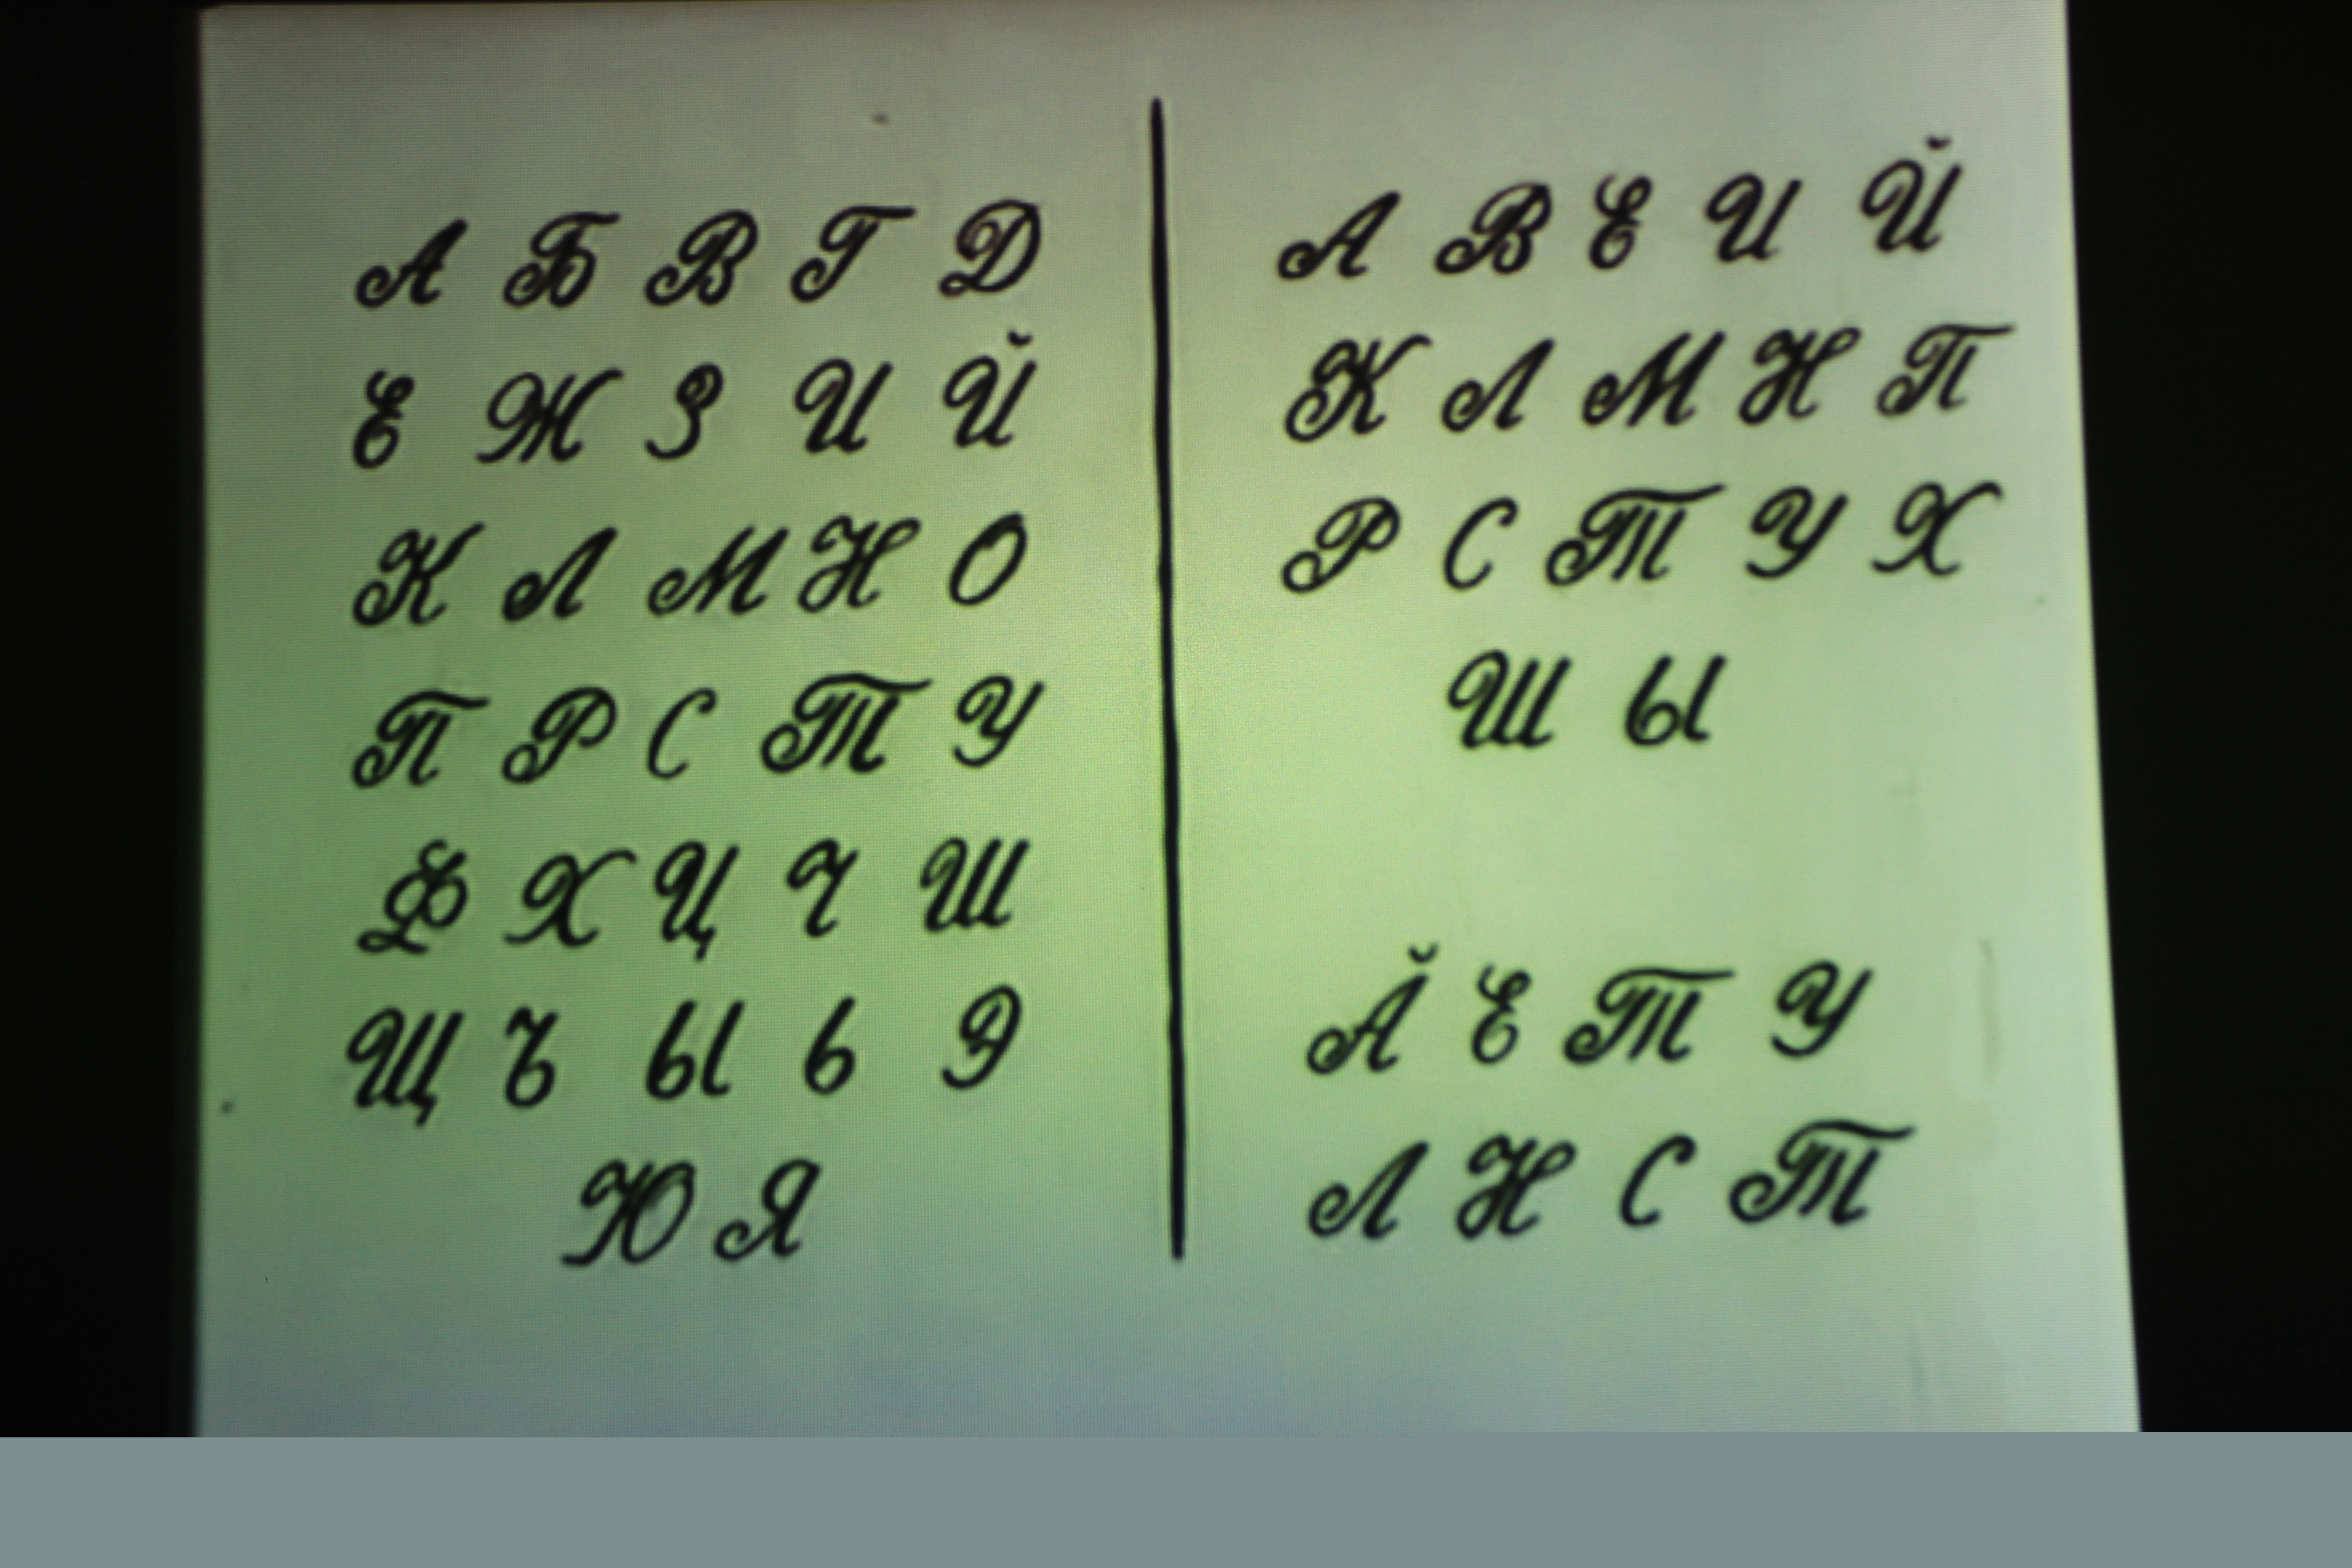 А Б В Г Д
Е Ж З И Й
К Л М Н О
П Р С Т У
Ф Х Ц Ч Ш
Щ Ъ Ы Ь Э
Ю Я
А В Е И Й
К Л М Н П
Р С Т У Х
Ш Ы
Ӑ Е Т У
Л Н С Т